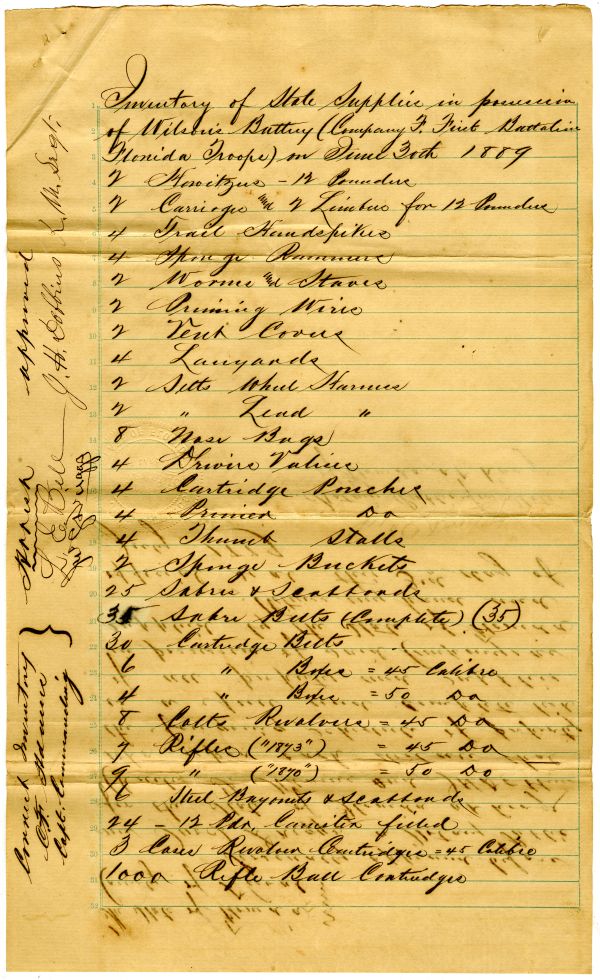 Inventory of State Supplies in possession
of Wilson's Battery (Company F. First Battalion
Florida Troops) on June 30th 1889
2 Howitzers - 12 Pounders
2 Carriages and 2 Limbers for 12 Pounders
4 Trail Handspikes
4 Sponge Rammers
2 Worms and Staves
2 Priming Wires
2 Vent Covers
4 Lanyards
2 Setts Wheel Harness
2 " Lead "
8 Nose Bags
4 Drivers Valises
4 Cartridge Pouches
4 Primer Do
4 Thumb Stalls
2 Sponge Buckets
25 Sabres & Scabboads
35 Sabre Belts (Complete) (35)
30 Cartridge Belts
6 " Boxes = 45 Calibre
4 " Boxes = 50 Do
8 Colts Revolvers = 45 Do
7 Rifles ("1873") = 45 Do
9 " ("1870") = 50 Do
6 Steel Bayonets & Scabboads
24 - 12 Pdr, Canister filled
3 Cases Revolver Cartridges = 45 Calibre
1000 Rifle Ball Cartridges
Correct Inventory
Capt. Commanding
approved
J. H. Dobbins Q. M. Segt.